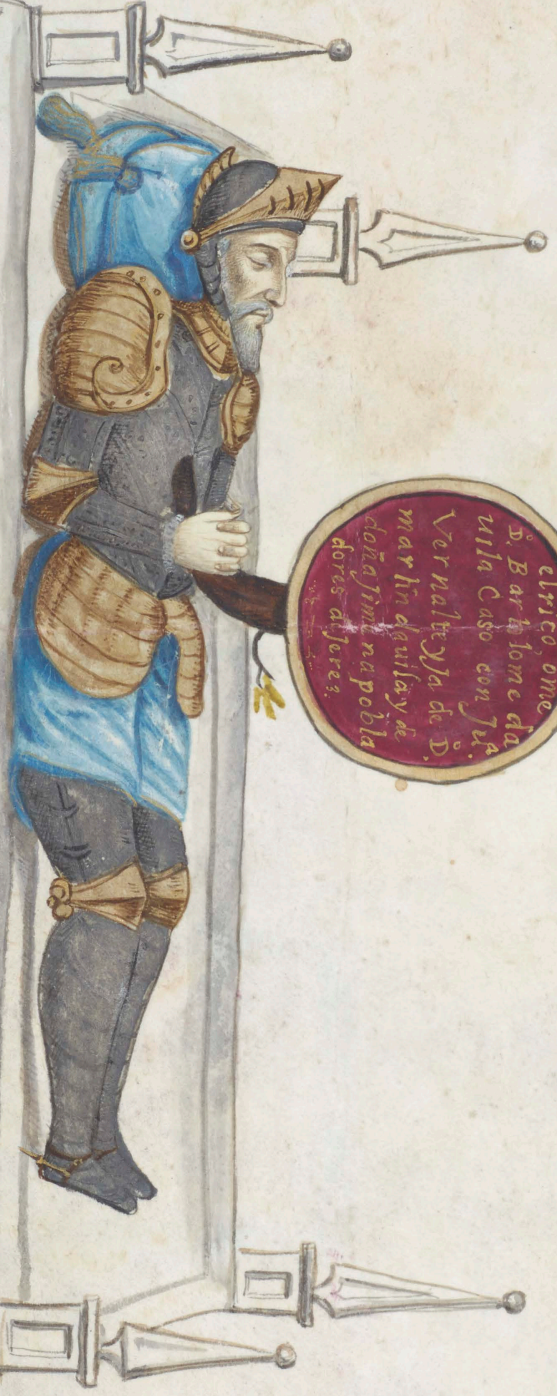 el rico ome
D. Bartolome da
uila Caso con Jua
Vernalte yJa de D.
martin dauila y de
doña Jimena pobla
dores d Jerez